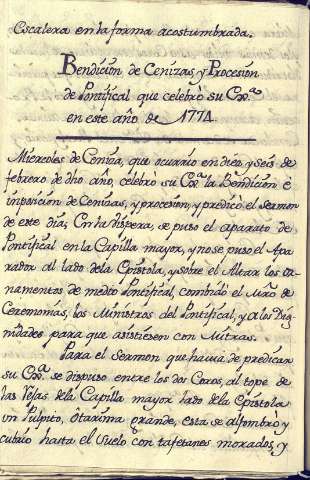 Escalera en la forma acostumbrada.
Bendicion de Cenizas, y Procesion
de Pontifical que celebró su Exª
en este año de 1774.
Miercoles de Ceniza, que ocurrió en diez y seis de
febrero de dho año, celebró su Exª la Bendicion è
inposicion de Cenizas, y procesion, y predicó el Sermon
de este dia; En la Vispera, se puso el aparato de
Pontifical en la Capilla mayor, y no se puso el Apa
rador al lado dela Epistola, y sobre el Altar los or-
namentos de medio Pontifical, combidó el Mrõ de
Ceremonias, los Ministros del Pontifical, y a las Dig
nidades para que asistiesen con Mitras.
Para el Sermon que havia de predicar
su Exª se dispuso entre los dos Coros, al tope de
las Vejas dela Capilla mayor lado dela Epistola
un Pulpito, ô tarima grande, esta se alfombró y
cubrio hasta el suelo con tafetanes morados, y